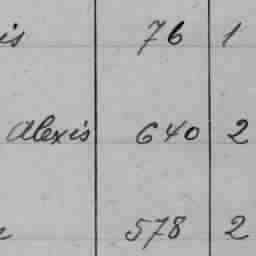 is 76 1
Alexis 640 2
578 2